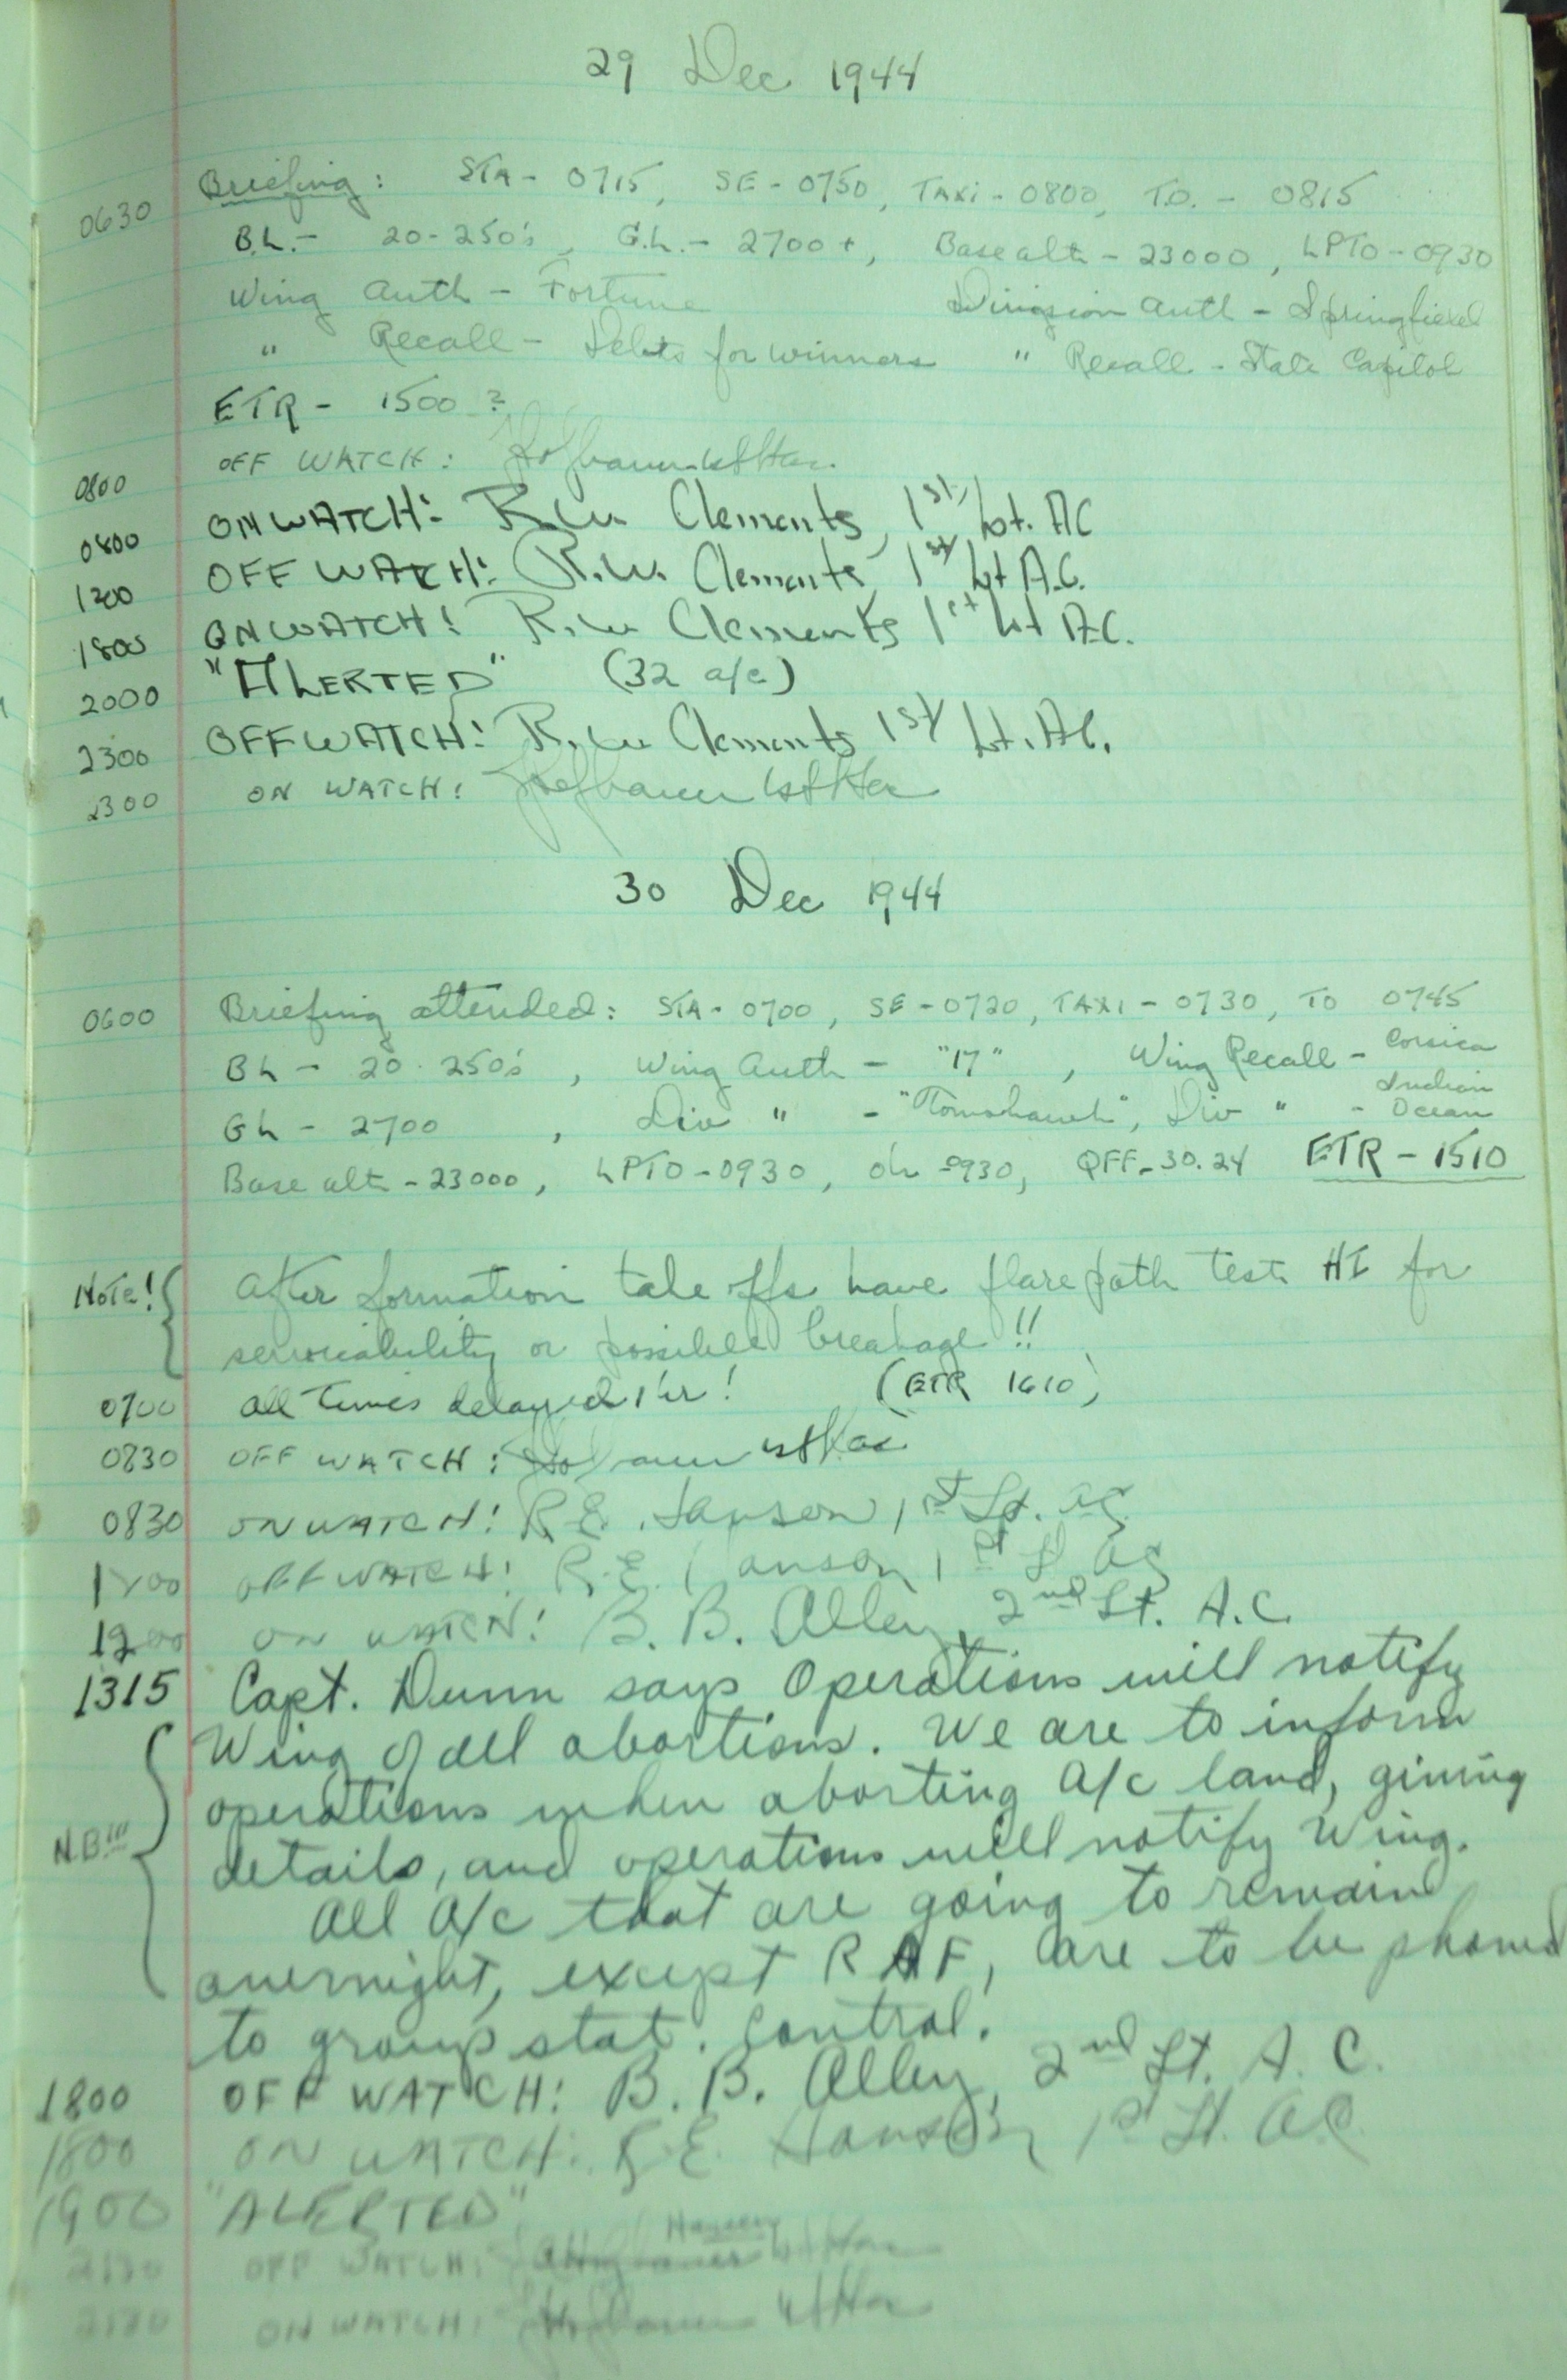 29 Dec 1944
0630 Briefing: STA - 0715, SE - 0750, TAXI - 0800, T.O. - 0815
B.L. - 20-250's, G.L. - 2700+, Base alt - 23000, LPTO - 0930
Wing Auth - Fortune Division Auth - Springfield
" Recall - Debts for winners " Recall - State Capitol
ETR - 1500 ?
0800 OFF WATCH:
0800 ON WATCH: R.W. Clements, 1st Lt. AC
1200 OFF WATCH: R.W. Clements, 1st Lt A.C.
1800 ON WATCH! R.W. Clements 1st Lt A.C.
2000 "ALERTED" (32 a/c)
2300 OFF WATCH! R.W. Clements 1st Lt. A.C.
2300 ON WATCH!
30 Dec 1944
0600 Briefing attended: STA - 0700, SE - 0720, TAXI - 0730, TO 0745
BL - 20 - 250's, Wing Auth - "17", Wing Recall - Corsica
GL - 2700, Div " - "Tomahawk", Div " - Indian Ocean
Base alt - 23000, LPTO - 0930, OL - 0930, QFF - 30.24 ETR - 1510
Note! After formation take offs have flare path test HT for
serviceability or possible breakage!!
0700 All times delayed 1 hr! (ETR 1610)
0830 OFF WATCH:
0830 ON WATCH! R.E. Hanson, 1st Lt. AC
1200 OFF WATCH! R.E. Hanson 1st Lt AC
1200 ON WATCH! B. B. Alley, 2nd Lt. A.C.
1315 Capt. Dunn says Operations will notify
Wing of all abortions. We are to inform
operations when aborting a/c land, giving
N.B!!! details, and operations will notify Wing.
All a/c that are going to remain
overnight, except RAF, are to be phoned
to group stat. control.
1800 OFF WATCH: B. B. Alley, 2nd Lt. A. C.
1800 ON WATCH: R.E. Hanson 1st Lt. A.C.
1900 "ALERTED"
OFF WATCH: Hanson
ON WATCH: